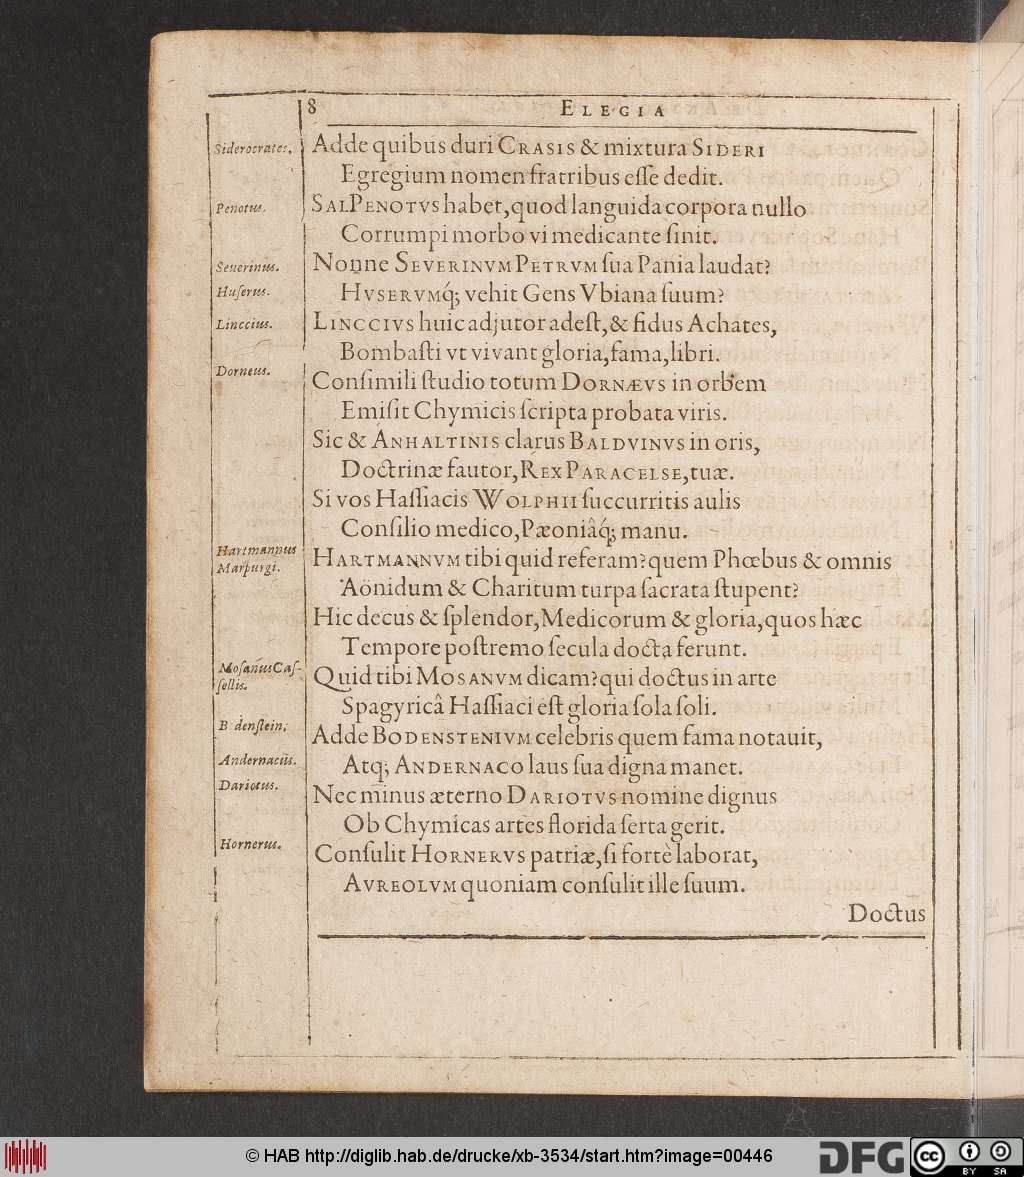 8 ELEGIA
Siderocrates.
Adde quibus duri CRASIS & mixtura SIDERI
Egregium nomen fratribus eſſe dedit.
Penotus.
SALPENOTVS habet, quod languida corpora nullo
Corrumpi morbo vi medicante ſinit.
Seuerinus.
Nonne SEVERINVM PETRVM ſua Pania laudat?
Huſerus.
HVSERVMq́; vehit Gens Vbiana ſuum?
Linccius.
LINCCIVS huic adjutor adeſt, & fidus Achates,
Bombaſti vt vivant gloria, fama, libri.
Dorneus.
Conſimili ſtudio totum DORNÆVS in orbem
Emiſit Chymicis ſcripta probata viris.
Sic & ANHALTINIS clarus BALDVINVS in oris,
Doctrinæ fautor, REX PARACELSE, tuæ.
Si vos Haſſiacis WOLPHII ſuccurritis aulis
Conſilio medico, Pæoniâq́; manu.
Hartmannus
Marpurgi.
HARTMANNVM tibi quid referam? quem Phœbus & omnis
Aönidum & Charitum turpa ſacrata ſtupent?
Hic decus & ſplendor, Medicorum & gloria, quos hæc
Tempore poſtremo ſecula docta ferunt.
Moſanus Caſ-
ſellis.
Quid tibi MOSANVM dicam? qui doctus in arte
Spagyricâ Haſſiaci eſt gloria ſola ſoli.
B denſtein.
Adde BODENSTENIVM celebris quem fama notauit,
Andernacus.
Atq; ANDERNACO laus ſua digna manet.
Dariotus.
Nec minus æterno DARIOTVS nomine dignus
Ob Chymicas artes florida ſerta gerit.
Hornerus.
Conſulit HORNERVS patriæ, ſi fortè laborat,
AVREOLVM quoniam conſulit ille ſuum.
Doctus
© HAB http://diglib.hab.de/drucke/xb-3534/start.htm?image=00446
DFG
cc BY SA